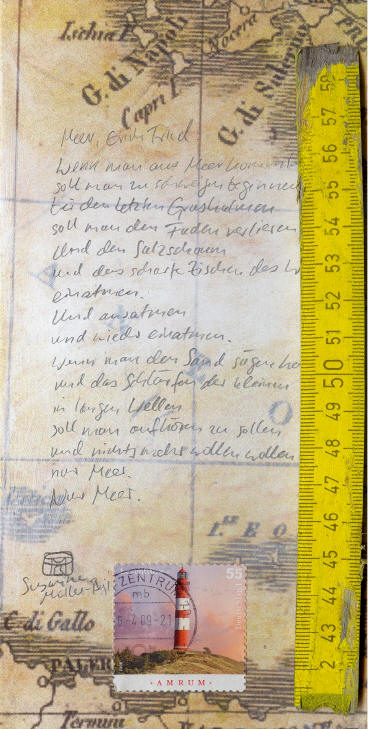 Ischia I.
G. di Napoli
Nocera
Capri I.
G. di Salerno
Meer, Erich Fried
Wenn man ans Meer kommt
soll man zu schweigen beginnen
bei den letzten Grashalmen
soll man den Faden verlieren
Und den Salzschaum
und das scharfe Zischen des
einatmen.
Und ausatmen
und wieder einatmen.
Wenn man den Sand sägen
und das Schlürfen der kleinen
in langen Wellen
soll man aufhören zu sollen
und nichts mehr wollen wollen
nur Meer.
Nur Meer.
Susanne
C. di Gallo
PALER
Termini
ZENTRUM
mb
4.09-21
55
Deutschland
·AMRUM·
58
57
56
55
54
53
52
51
50
49
48
47
46
45
44
43
2